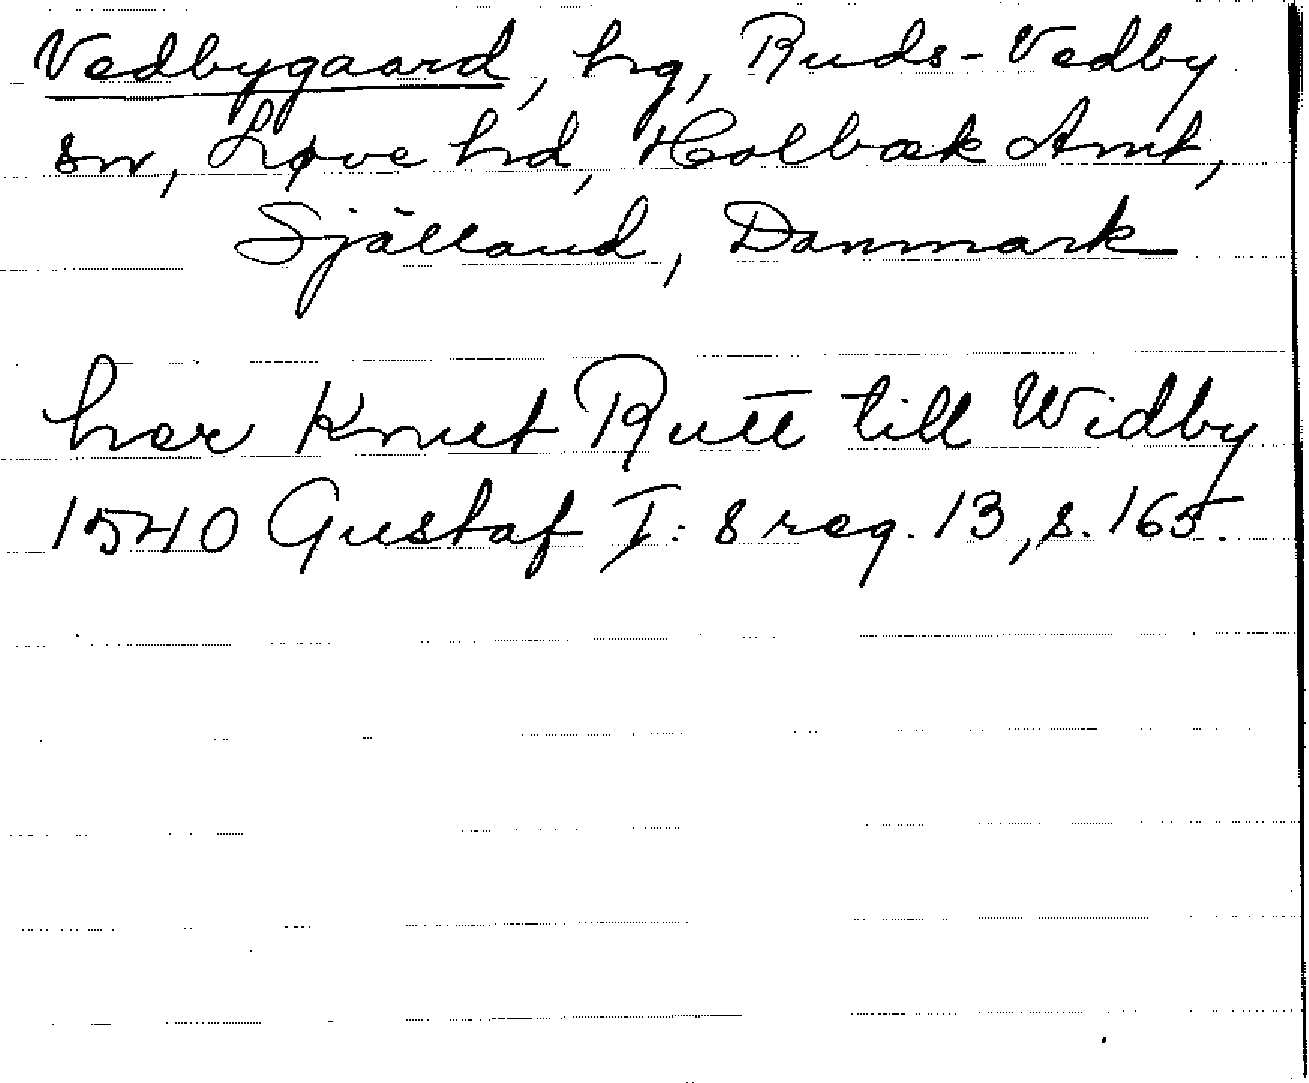 Vedbygaard, hg, Ruds-Vedby
sn, Løve hd, Holbæk Amt,
Själland, Danmark
har Knut Rutt till Widby
1540 Gustaf I:s reg. 13, s. 165.